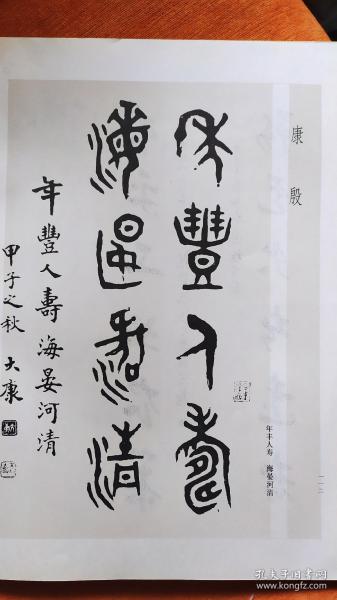 康殷
年豐人壽
海晏河清
年豐人壽海晏河清
甲子之秋 大康
年丰人寿 海晏河清
一一二
孔夫子旧书网
www.kongfz.com